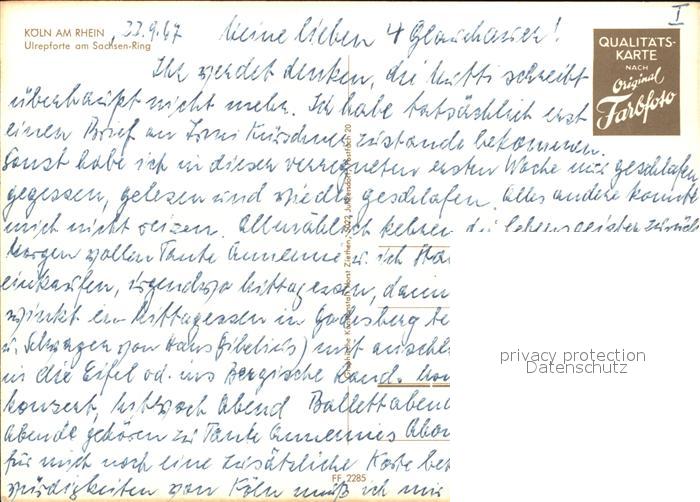 I
KÖLN AM RHEIN
Ulrepforte am Sachsen-Ring
, 23.9.67 Meine lieben 4 Glauchauer!
QUALITÄTS-
KARTE
NACH
Original
Farbfoto
Ihr werdet denken, die Mutti schreibt
überhaupt nicht mehr. Ich habe tatsächlich erst
einen Brief an Irmi Kürschner zustande bekommen.
Sonst habe ich in dieser verregneten ersten Woche nur geschlafen,
gegessen, gelesen und wieder geschlafen. Alles andere konnte
mich nicht reizen. Allmählich kehren die Lebensgeister zurück
Morgen wollen Tante Annemie u. ich
einkaufen, irgendwo Mittagessen, dann
winkt ein Mittagessen in Godesberg
u. Schwager von Hans Gibelius) mit
in die Eifel od. ins Bergische Land.
Konzert, Mittwoch Abend Ballettabend
Abende gehören zu Tante Annemies
für mich noch eine zusätzliche Karte
würdigkeiten von Köln muß ich mir
FF 2285
privacy protection
Datenschutz